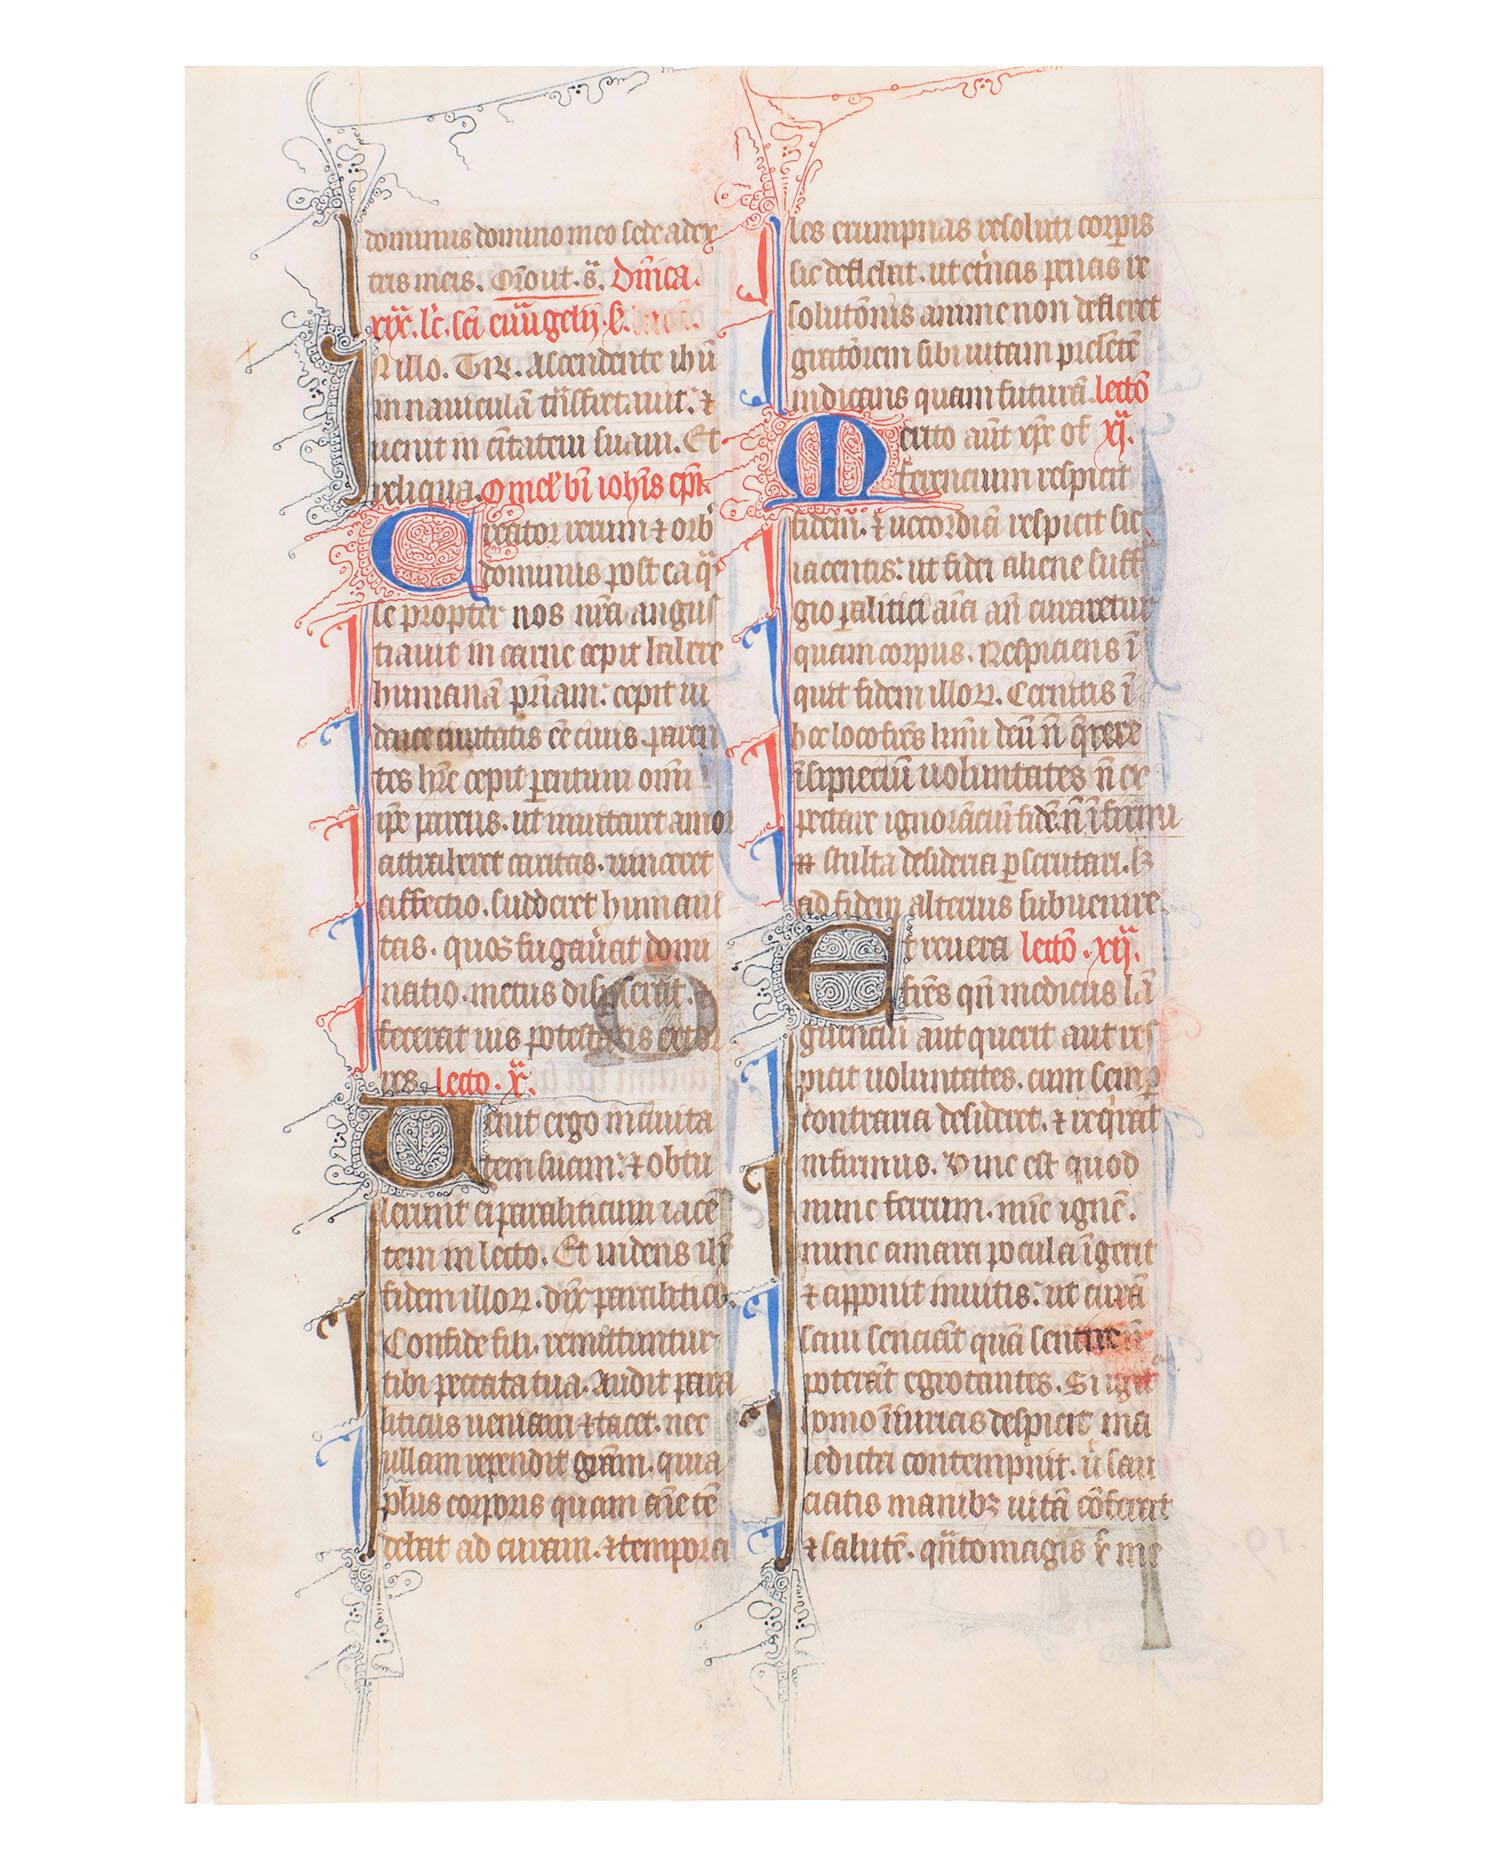 dominus domino meo sede a dex
tris meis. Oro ut. s. Dnica.
xix. lc. sci euugelii. s.
N illo. TR. Ascendente ihu
in nauicula transfretauit. et
uenit in ciuitatem suam. Et
reliqua. Omel' bi iohis epi.
Creator rerum et orb'
dominus post ea q
se propter nos nra angus
tiauit in carne cepit habere
humanam priam: cepit iu
daice ciuitatis ee ciuis. paren
tes hre cepit parentum oim
ipe parens. ut inuitaret amor
attraheret caritas. uinceret
affectio. suaderet humani
tas. quos fugarat domi
natio. metus disperserat.
fecerat uis potestatis extor
res. lecto. x.
Uenit ergo in ciuita
tem suam: et obtu
lerunt ei paraliticum iacen
tem in lecto. Et uidens ihs
fidem illorum. dix paralitico.
Confide fili. remittuntur
tibi peccata tua. Audit para
liticus ueniam et tacet. nec
ullam rependit gram. quia
plus corporis quam aie ten
debat ad curam. et tempora
les erumpnas resoluti corporis
sic deflebat. ut eternas penas re
solutionis anime non defleret
gratiorem sibi uitam presentem
indicans quam futuram. lecto
Merito aut xpc of xi.
ferencium respicit
fidem. et uecordiam respicit sic
iacentis: ut fidei aliene suffra
gio paralitici aia an curaretur
quam corpus. Respiciens in
quit fidem illorum. Cernitis in
hoc loco fres huius deum n querere
insipiencium uoluntates n ex
pectare ignoranciu fidem n infirmi
stulta desideria perscrutari. s3
ad fidem alterius subuenire.
Et reuera lecto. xii.
fres qn medicus lan
guencium aut querit aut res
picit uoluntates. cum semper
contraria desideret. et requirat
infirmus. Hinc est quod
nunc ferrum. nunc ignem.
nunc amara pocula ingerit
et apponit inuitis. ut curam
sani senciant quam sentire n
poterant egrotantes. Si igit
homo iniurias despicit ma
ledicta contempnit. ut sau
ciatis manibus uitam conferat
et salutem. quanto magis xr me